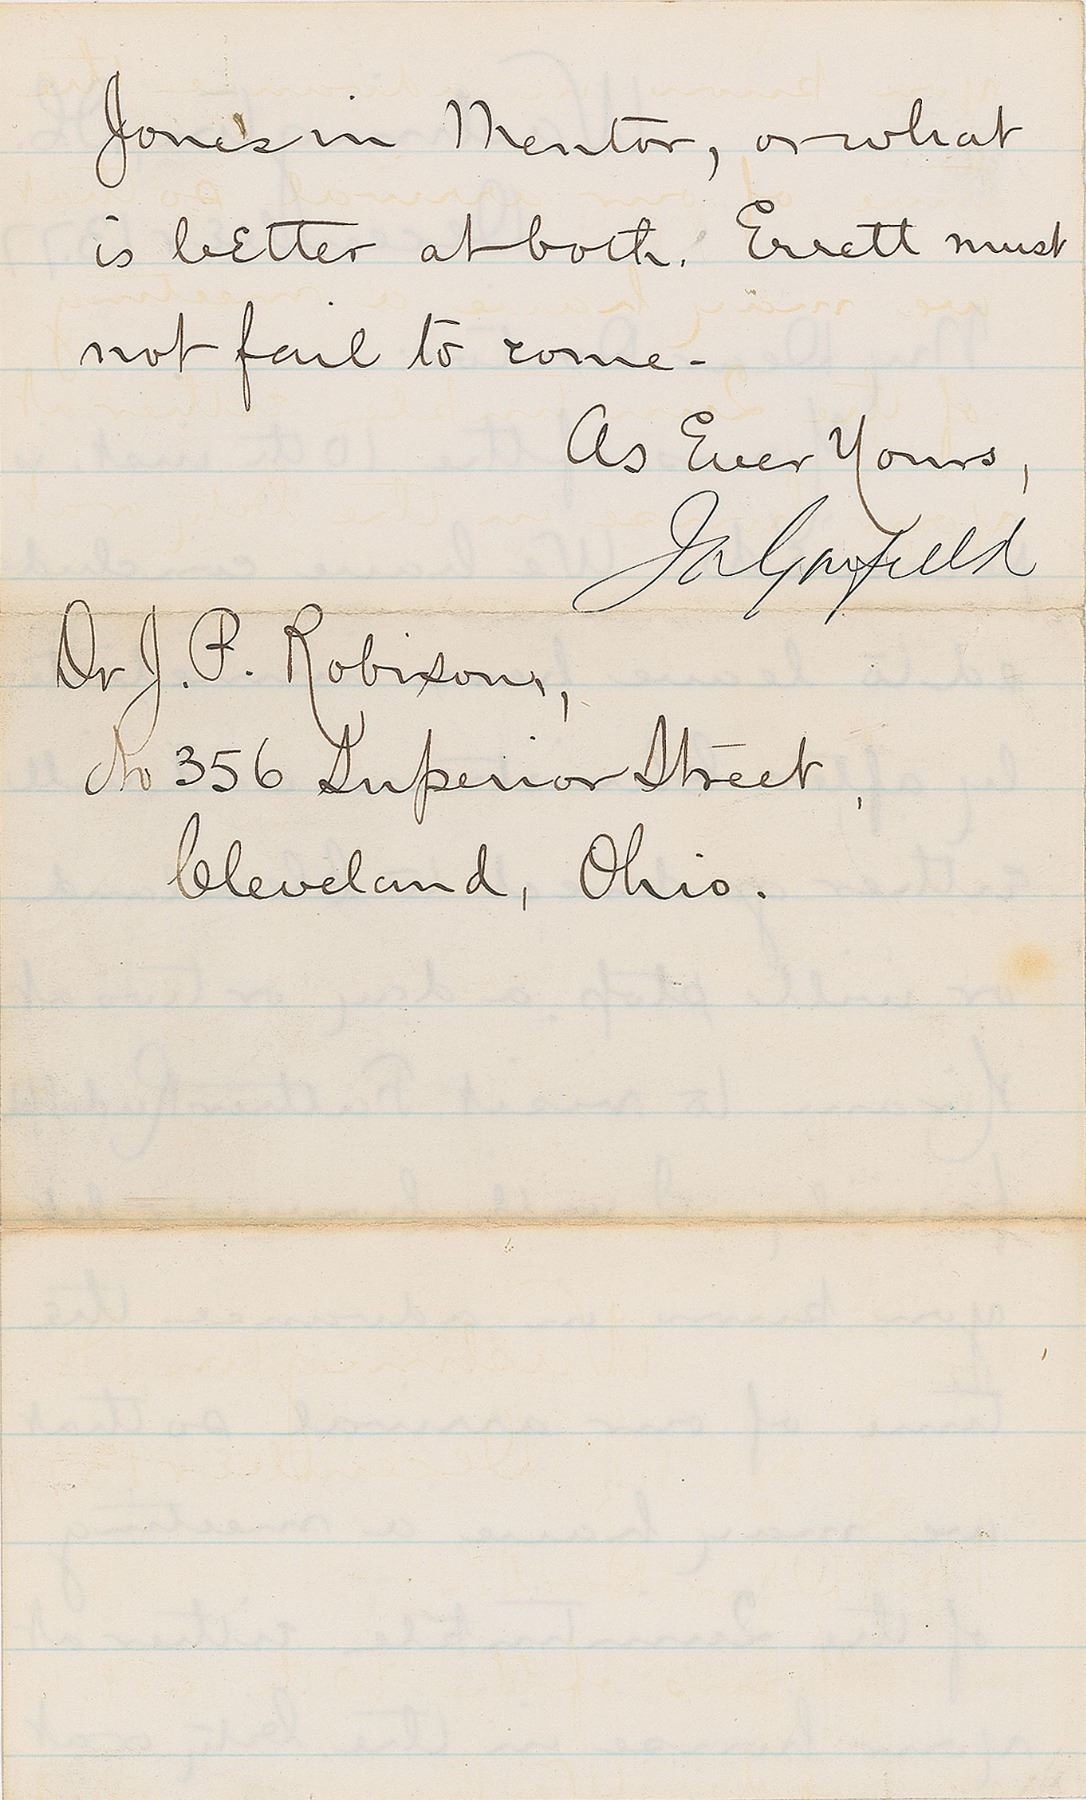 Jones in Mentor, or what
is better at both. Errett must
not fail to come-
As Ever Yours,
JAGarfield
Dr J. P. Robison,
No 356 Superior Street,
Cleveland, Ohio.